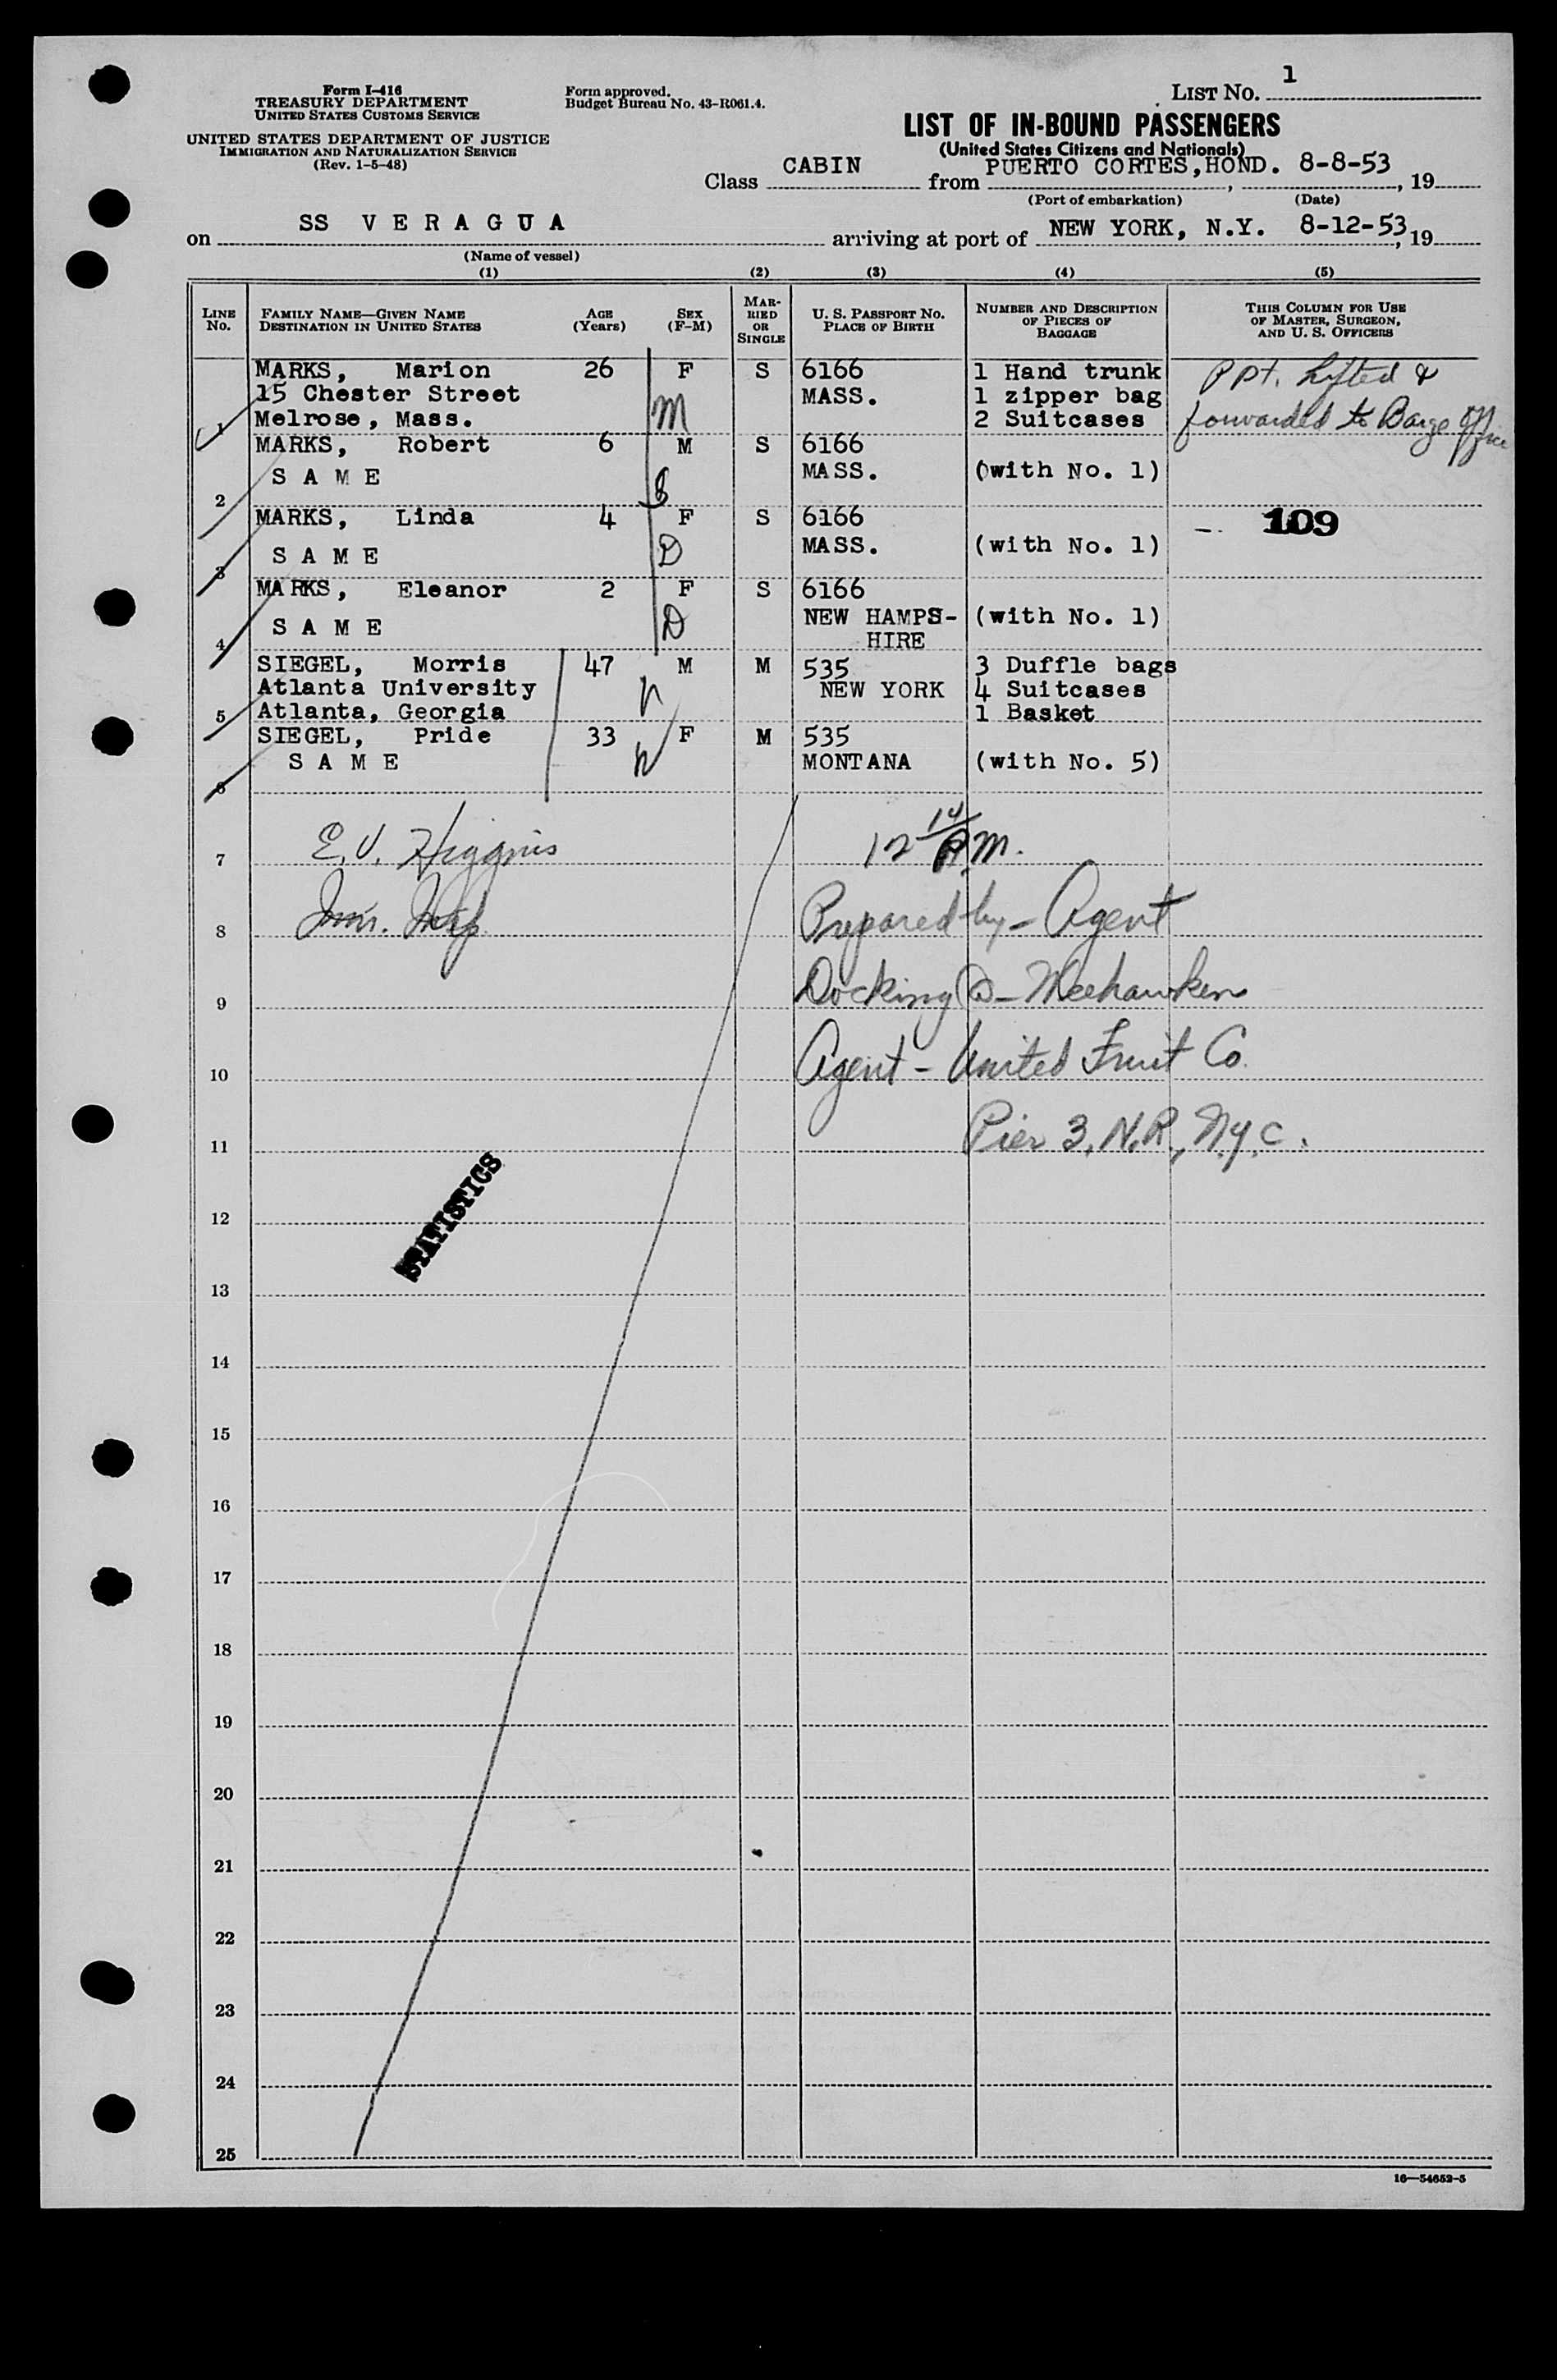 Form I-416
TREASURY DEPARTMENT
UNITED STATES CUSTOMS SERVICE
UNITED STATES DEPARTMENT OF JUSTICE
IMMIGRATION AND NATURALIZATION SERVICE
(Rev. 1-5-48)
Form approved.
Budget Bureau No. 43-R061.4.
LIST No. 1
LIST OF IN-BOUND PASSENGERS
(United States Citizens and Nationals)
Class CABIN from PUERTO CORTES, HOND. 8-8-53, 19
(Port of embarkation) (Date)
on SS VERAGUA arriving at port of NEW YORK, N.Y. 8-12-53, 19
(Name of vessel)
(1) (2) (3) (4) (5)
LINE No.
FAMILY NAME—GIVEN NAME
DESTINATION IN UNITED STATES
AGE (Years)
SEX (F-M)
MARRIED OR SINGLE
U. S. PASSPORT NO.
PLACE OF BIRTH
NUMBER AND DESCRIPTION OF PIECES OF BAGGAGE
THIS COLUMN FOR USE OF MASTER, SURGEON, AND U. S. OFFICERS
MARKS, Marion 26 F S 6166 1 Hand trunk Ppt. lifted &
15 Chester Street MASS. 1 zipper bag
1 Melrose, Mass. M 2 Suitcases forwarded to Barge Office
MARKS, Robert 6 M S 6166
SAME MASS. (with No. 1)
2 S
MARKS, Linda 4 F S 6166 109
SAME D MASS. (with No. 1)
3
MARKS, Eleanor 2 F S 6166
SAME D NEW HAMPS- (with No. 1)
4 HIRE
SIEGEL, Morris 47 M M 535 3 Duffle bags
Atlanta University NEW YORK 4 Suitcases
5 Atlanta, Georgia 1 Basket
SIEGEL, Pride 33 F M 535
SAME MONTANA (with No. 5)
6
7 E. V. Higgins 12 14 P.M.
8 Imm. Insp. Prepared by - Agent
9 Docking @ - Weehawken
10 Agent - United Fruit Co.
11 Pier 3, N.R., N.Y.C.
STATISTICS
12
13
14
15
16
17
18
19
20
21
22
23
24
25
16—54652-5